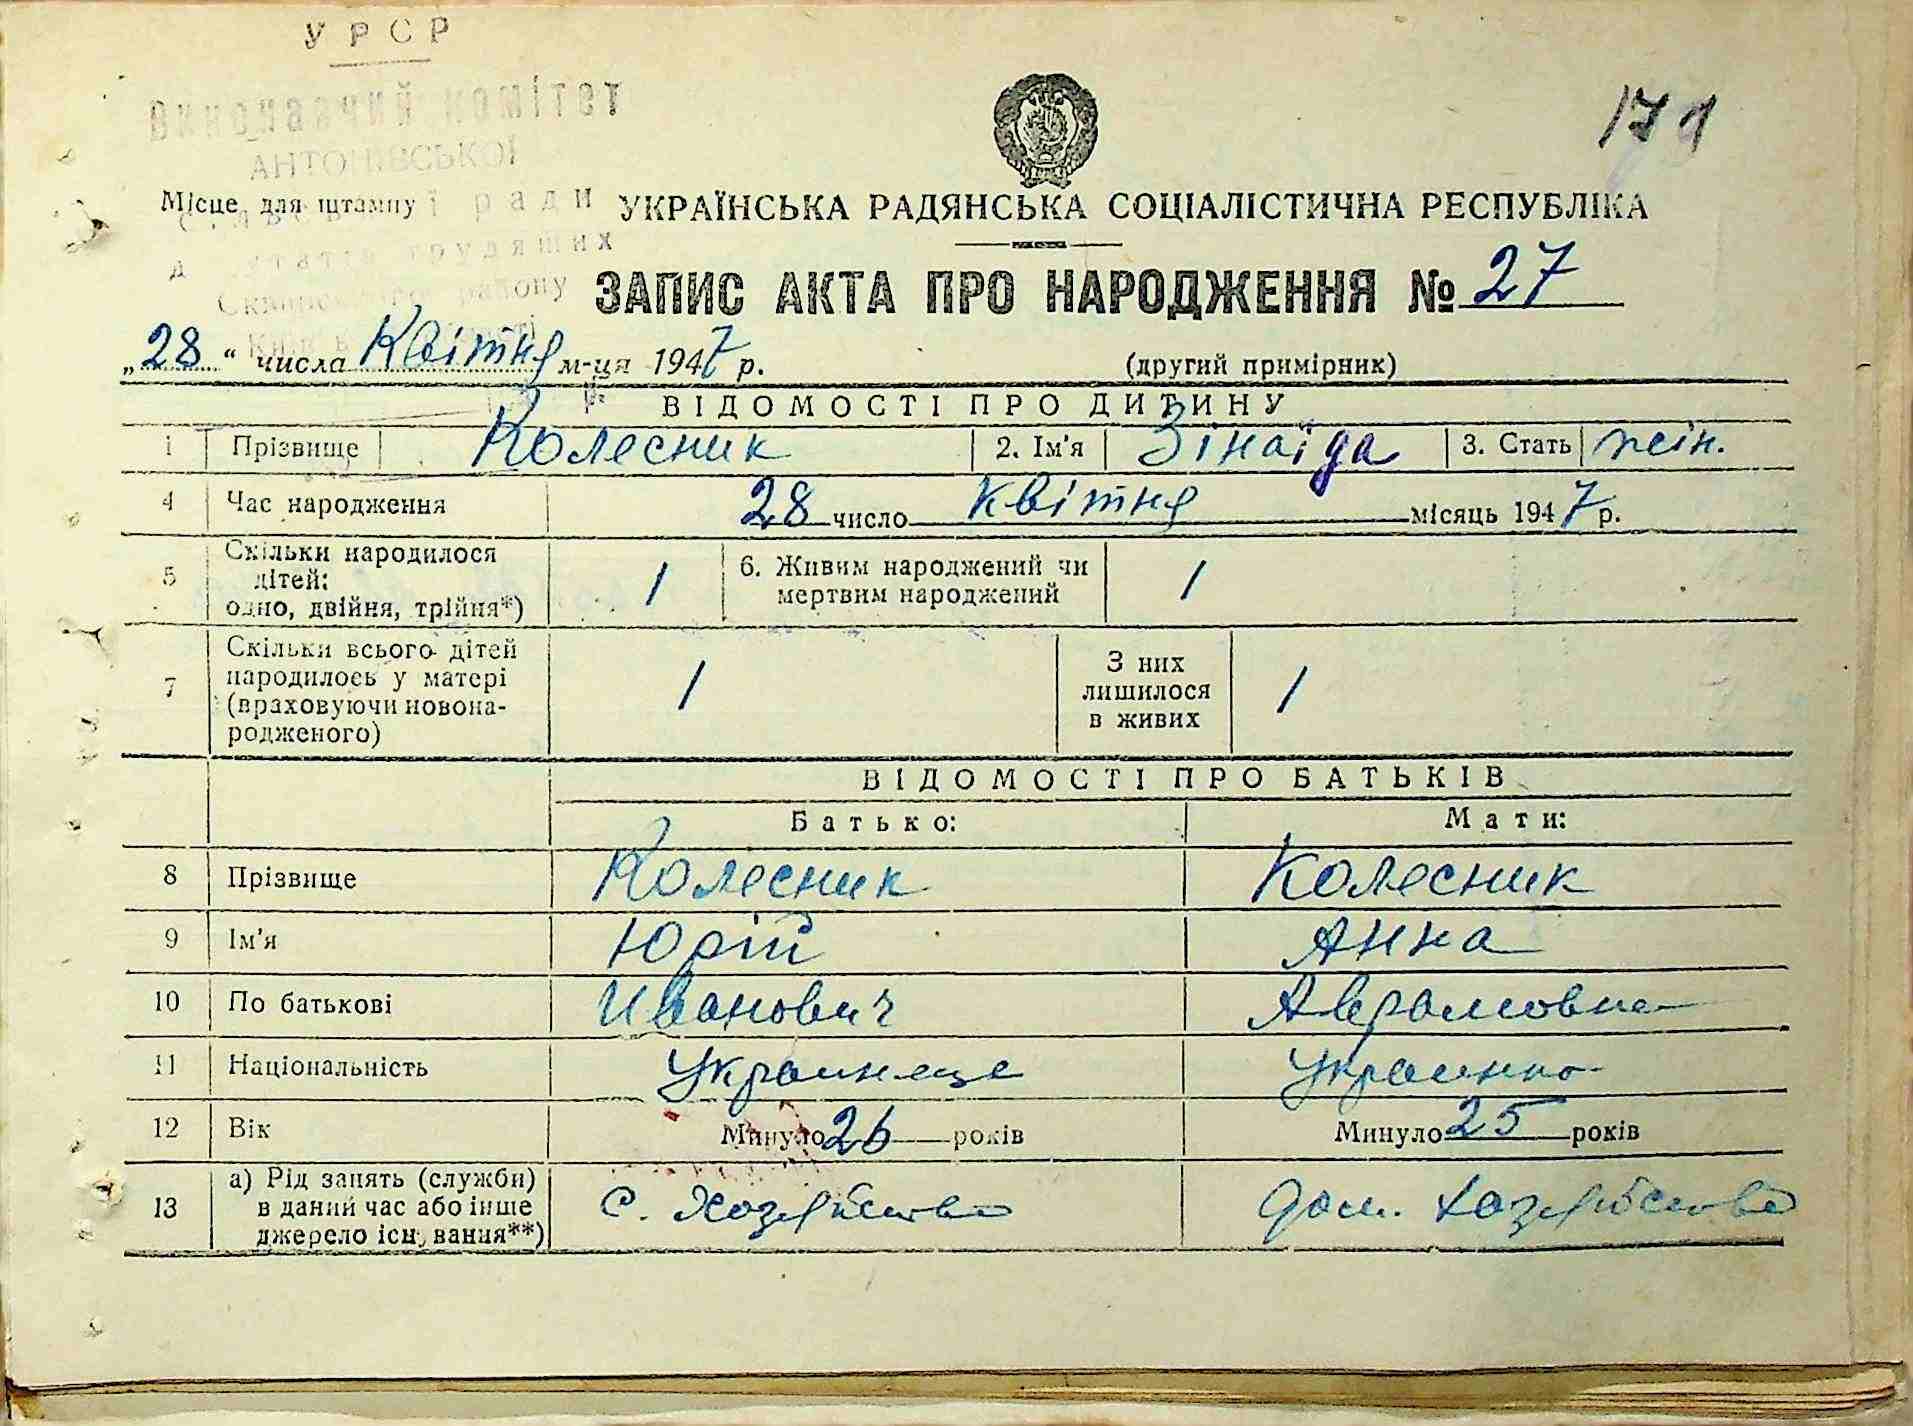 УРСР
Виконавчий комітет
АНТОНІВСЬКОЇ
ради
Місце для штампу
трудящих
Сквирського району
179
УКРАЇНСЬКА РАДЯНСЬКА СОЦІАЛІСТИЧНА РЕСПУБЛІКА
ЗАПИС АКТА ПРО НАРОДЖЕННЯ № 27
„28" числа Квітня м-ця 1947 р. (другий примірник)
ВІДОМОСТІ ПРО ДИТИНУ
1 Прізвище Колесник 2. Ім'я Зінаїда 3. Стать жін.
4 Час народження 28 число квітня місяць 1947 р.
5 Скільки народилося
дітей:
одно, двійня, трійня*) 1 6. Живим народжений чи
мертвим народжений 1
7 Скільки всього дітей
народилось у матері
(враховуючи новона-
родженого) 1 З них
лишилося
в живих 1
ВІДОМОСТІ ПРО БАТЬКІВ
Батько: Мати:
8 Прізвище Колесник Колесник
9 Ім'я Юрій Анна
10 По батькові Иванович Аврамовна
11 Національність
12 Вік Минуло 26 років Минуло 25 років
13 а) Рід занять (служби)
в даний час або інше
джерело існування**) С. Хозяйство дом. хозяйство